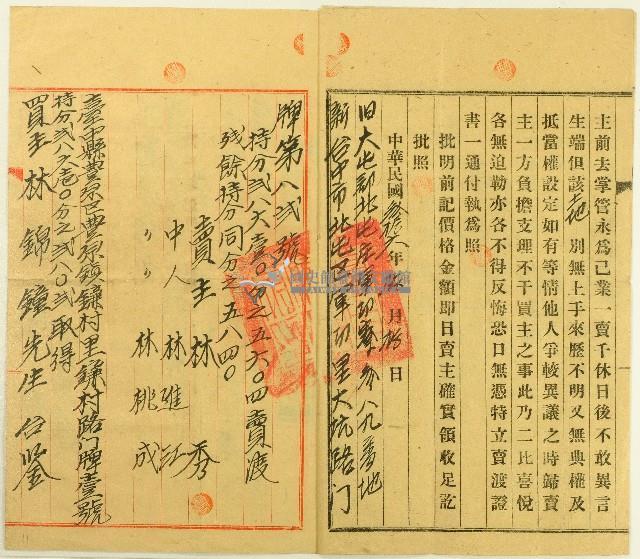 主前去掌管永爲己業一賣千休日後不敢異言
生端但該土地別無上手來歷不明又無典權及
抵當權設定如有等情他人爭較異議之時歸賣
主一方負擔支理不干買主之事此乃二比喜悅
各無迫勒亦各不得反悔恐口無憑特立賣渡證
書一通付執爲照
批明前記價格金額即日賣主確實領收足訖
批照
中華民國 年 月 日
旧大屯郡北屯庄軍功寮參八九番地
新台中市北屯區軍功里大坑路门
牌第八弍號
持分弍八六壹0分之五六0四賣渡
残餘持分同分之五八四0
賣主林 秀
中人 林進江
〃〃 林桃成
臺中縣豐原區豐原鎮鎌村里鎌村路门牌壹號
持分弍八六壹0分之弍八0弍取得
買主林錦鐘先生 台鉴